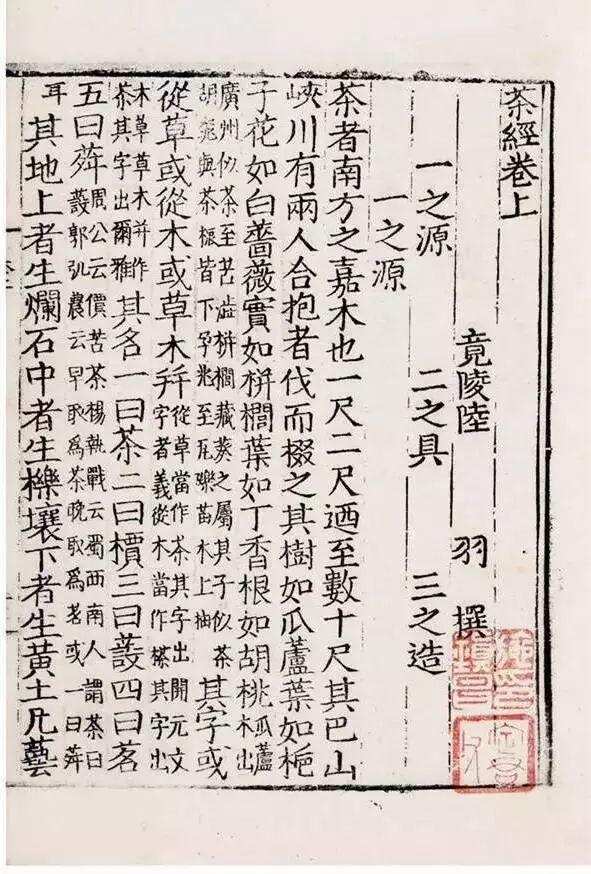 茶經卷上
竟陵陸 羽 撰
一之源 二之具 三之造
一之源
茶者南方之嘉木也一尺二尺迺至數十尺其巴山
峽川有兩人合抱者伐而掇之其樹如瓜蘆葉如梔
子花如白薔薇實如栟櫚葉如丁香根如胡桃瓜蘆木出
廣州似茶至苦澁栟櫚藏葵之屬其子似茶胡桃與茶根皆下孕兆至瓦礫苗木上抽其字或
從草或從木或草木幷從草當作茶其字出開元文字者義從木當作搽其字出
木草草木并作茶其字出爾雅其名一曰茶二曰檟三曰蔎四曰茗
五曰荈周公云檟苦茶楊執戟云蜀西南人謂茶曰蔎郭弘農云早取爲茶晚取爲茗或一曰荈
耳其地上者生爛石中者生櫟壤下者生黃土凡藝